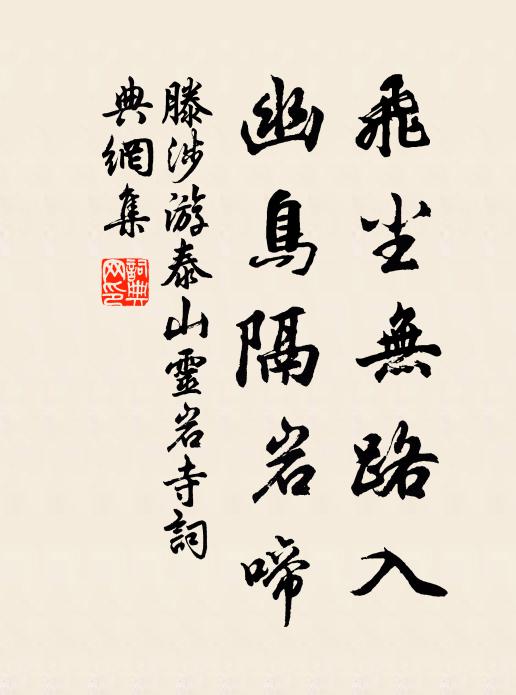 飛尘無路入
幽鳥隔岩啼
滕涉游泰山靈岩寺詞
典網集
詞典网印